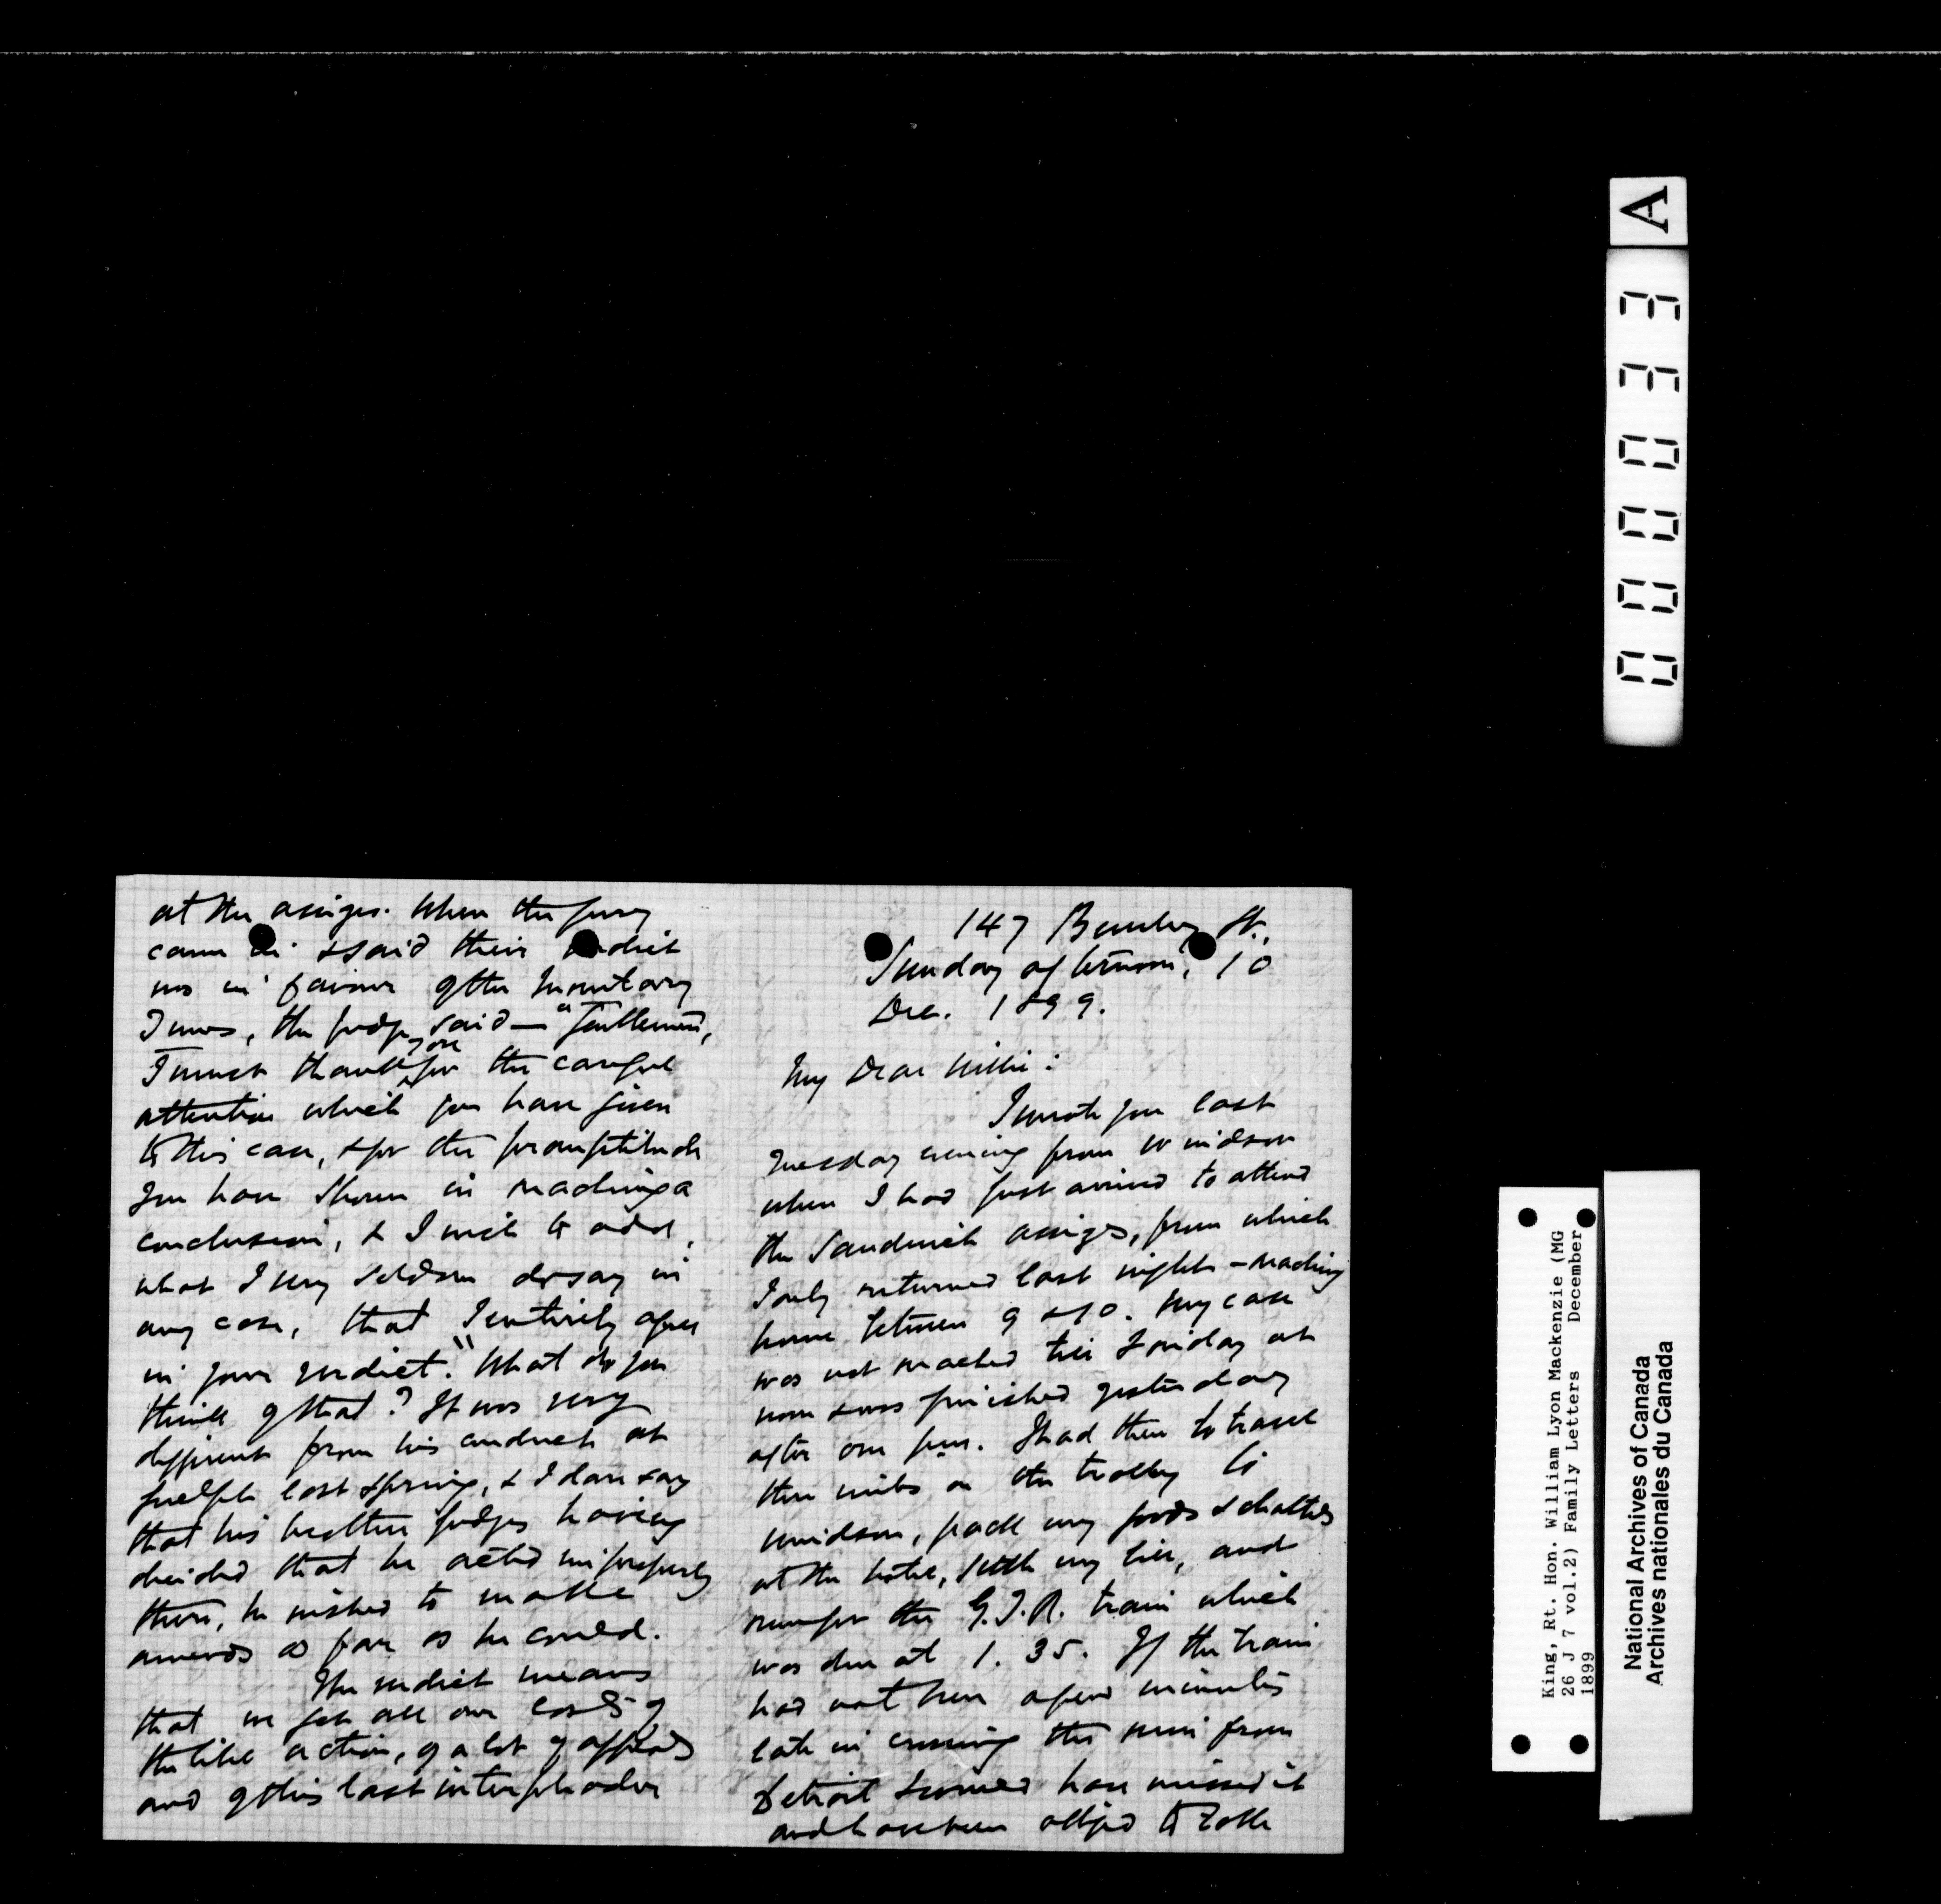 147 Beverley St.,
Sunday afternoon, 10
Dec. 1899.
My Dear Willie:
I wrote you last
Tuesday evening from Windsor
when I had just arrived to attend
the Sandwich assizes, from which
I only returned last night – reaching
home between 9 & 10. My case
was not reached till Friday at
noon & was finished yesterday
after one p.m. I had then to travel
three miles on the trolley to
Windsor, pack my goods & chattels
at the hotel, settle my bill, and
run for the G.T.R. train which
was due at 1.35. If the train
had not been a few minutes
late in crossing the river from
Detroit I would have missed it
and have been obliged to take
at the assizes. When the jury
came in & said their verdict
was in favour of the Monetary
Times, the judge said — "Gentlemen,
I must thank you for the careful
attention which you have given
to this case, & for the promptitude
you have shown in reaching a
conclusion, & I wish to add,
what I very seldom do say in
any case, that I entirely agree
in your verdict." What do you
think of that? It was very
different from his conduct at
Guelph last Spring, & I dare say
that his brother judges having
decided that he acted improperly
there, he wished to make
amends as far as he could.
The verdict means
that we get all our costs of
the libel action, of a lot of appeals
and of this last interpleader
A
EE0000
King, Rt. Hon. William Lyon Mackenzie (MG
26 J 7 vol.2) Family Letters December
1899
National Archives of Canada
Archives nationales du Canada